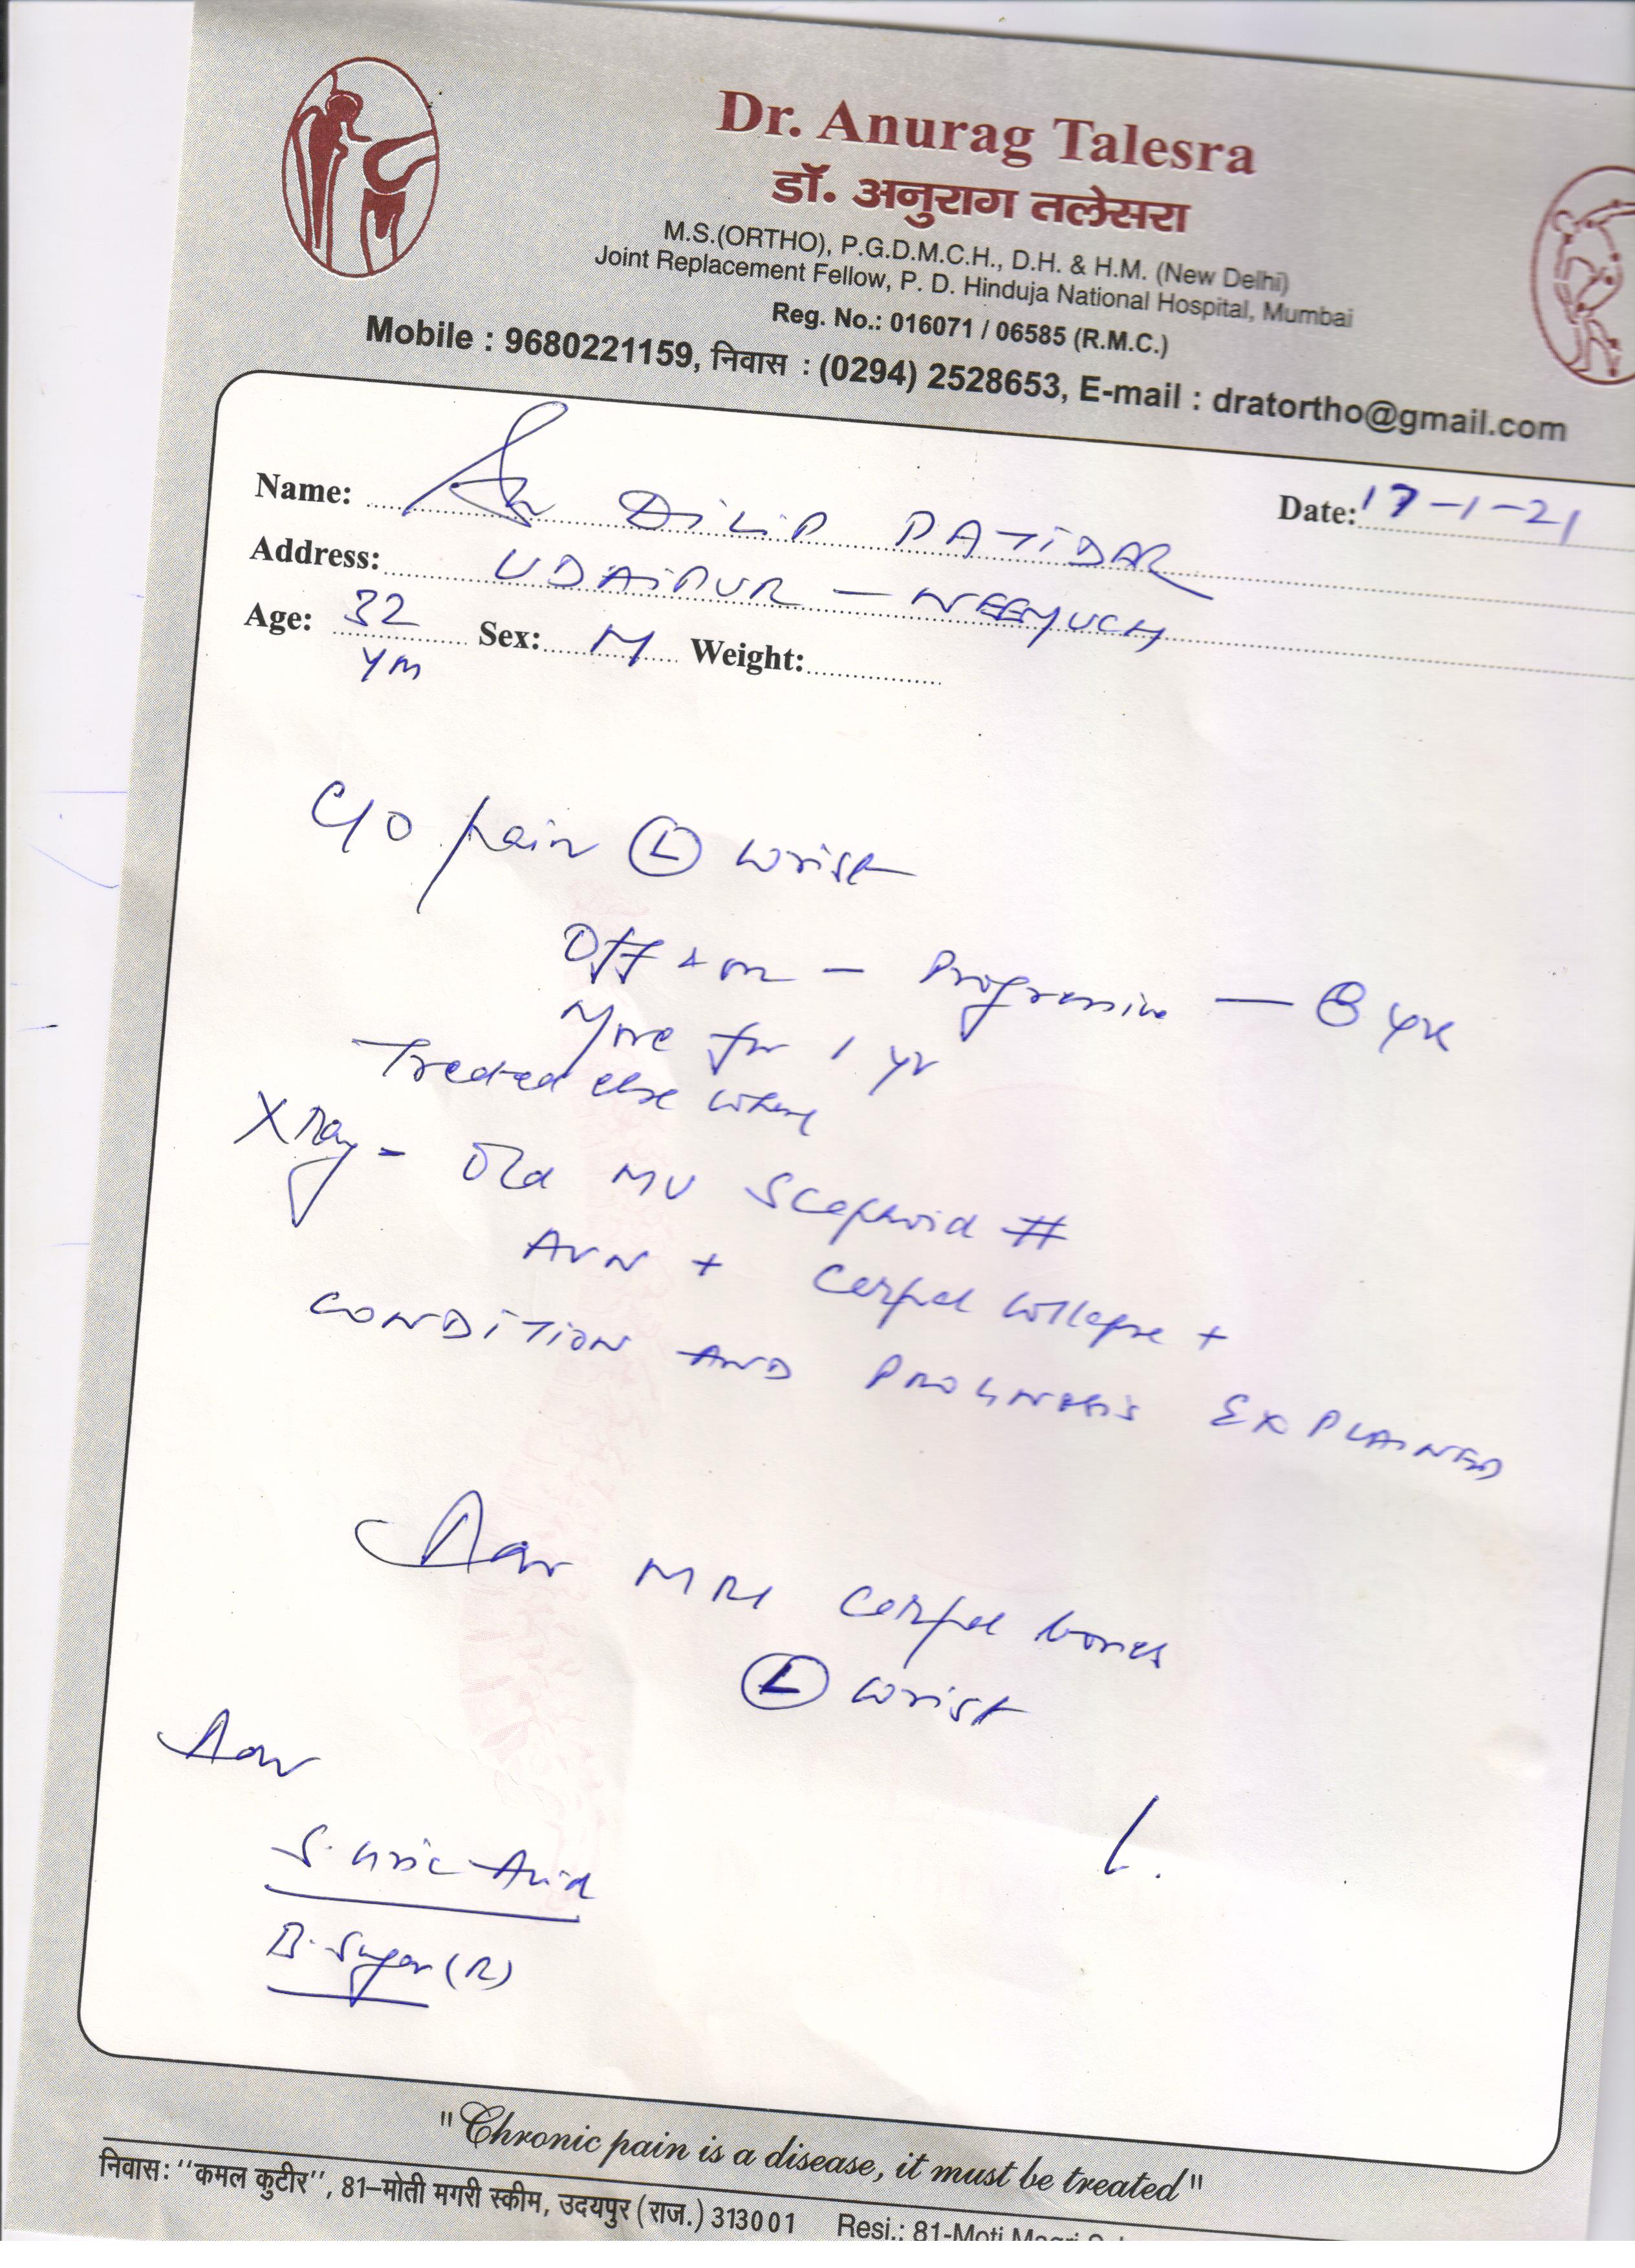 Dr. Anurag Talesra
डॉ. अनुराग तलेसरा
M.S.(ORTHO), P.G.D.M.C.H., D.H. & H.M. (New Delhi)
Joint Replacement Fellow, P. D. Hinduja National Hospital, Mumbai
Reg. No.: 016071 / 06585 (R.M.C.)
Mobile : 9680221159, निवास : (0294) 2528653, E-mail : dratortho@gmail.com
Name: DiLiP PATiDAR Date: 17-1-21
Address: UDAiPUR - NEEMUCH
Age: 32 Sex: M Weight:
C/O pain (L) wrist
Off & on - Progressive - 8 yrs
More for 1 yr
Treated else where
X Ray - Old MU Scaphoid #
AVN + Carpal Collapse +
CONDITION AND PROGNOSIS EXPLAINED
Adv MRI Carpal bones
(L) wrist
Adv
S. Uric Acid
B. Sugar (R)
"Chronic pain is a disease, it must be treated"
निवास: "कमल कुटीर", 81-मोती मगरी स्कीम, उदयपुर (राज.) 313001 Resi.: 81-Moti Magri